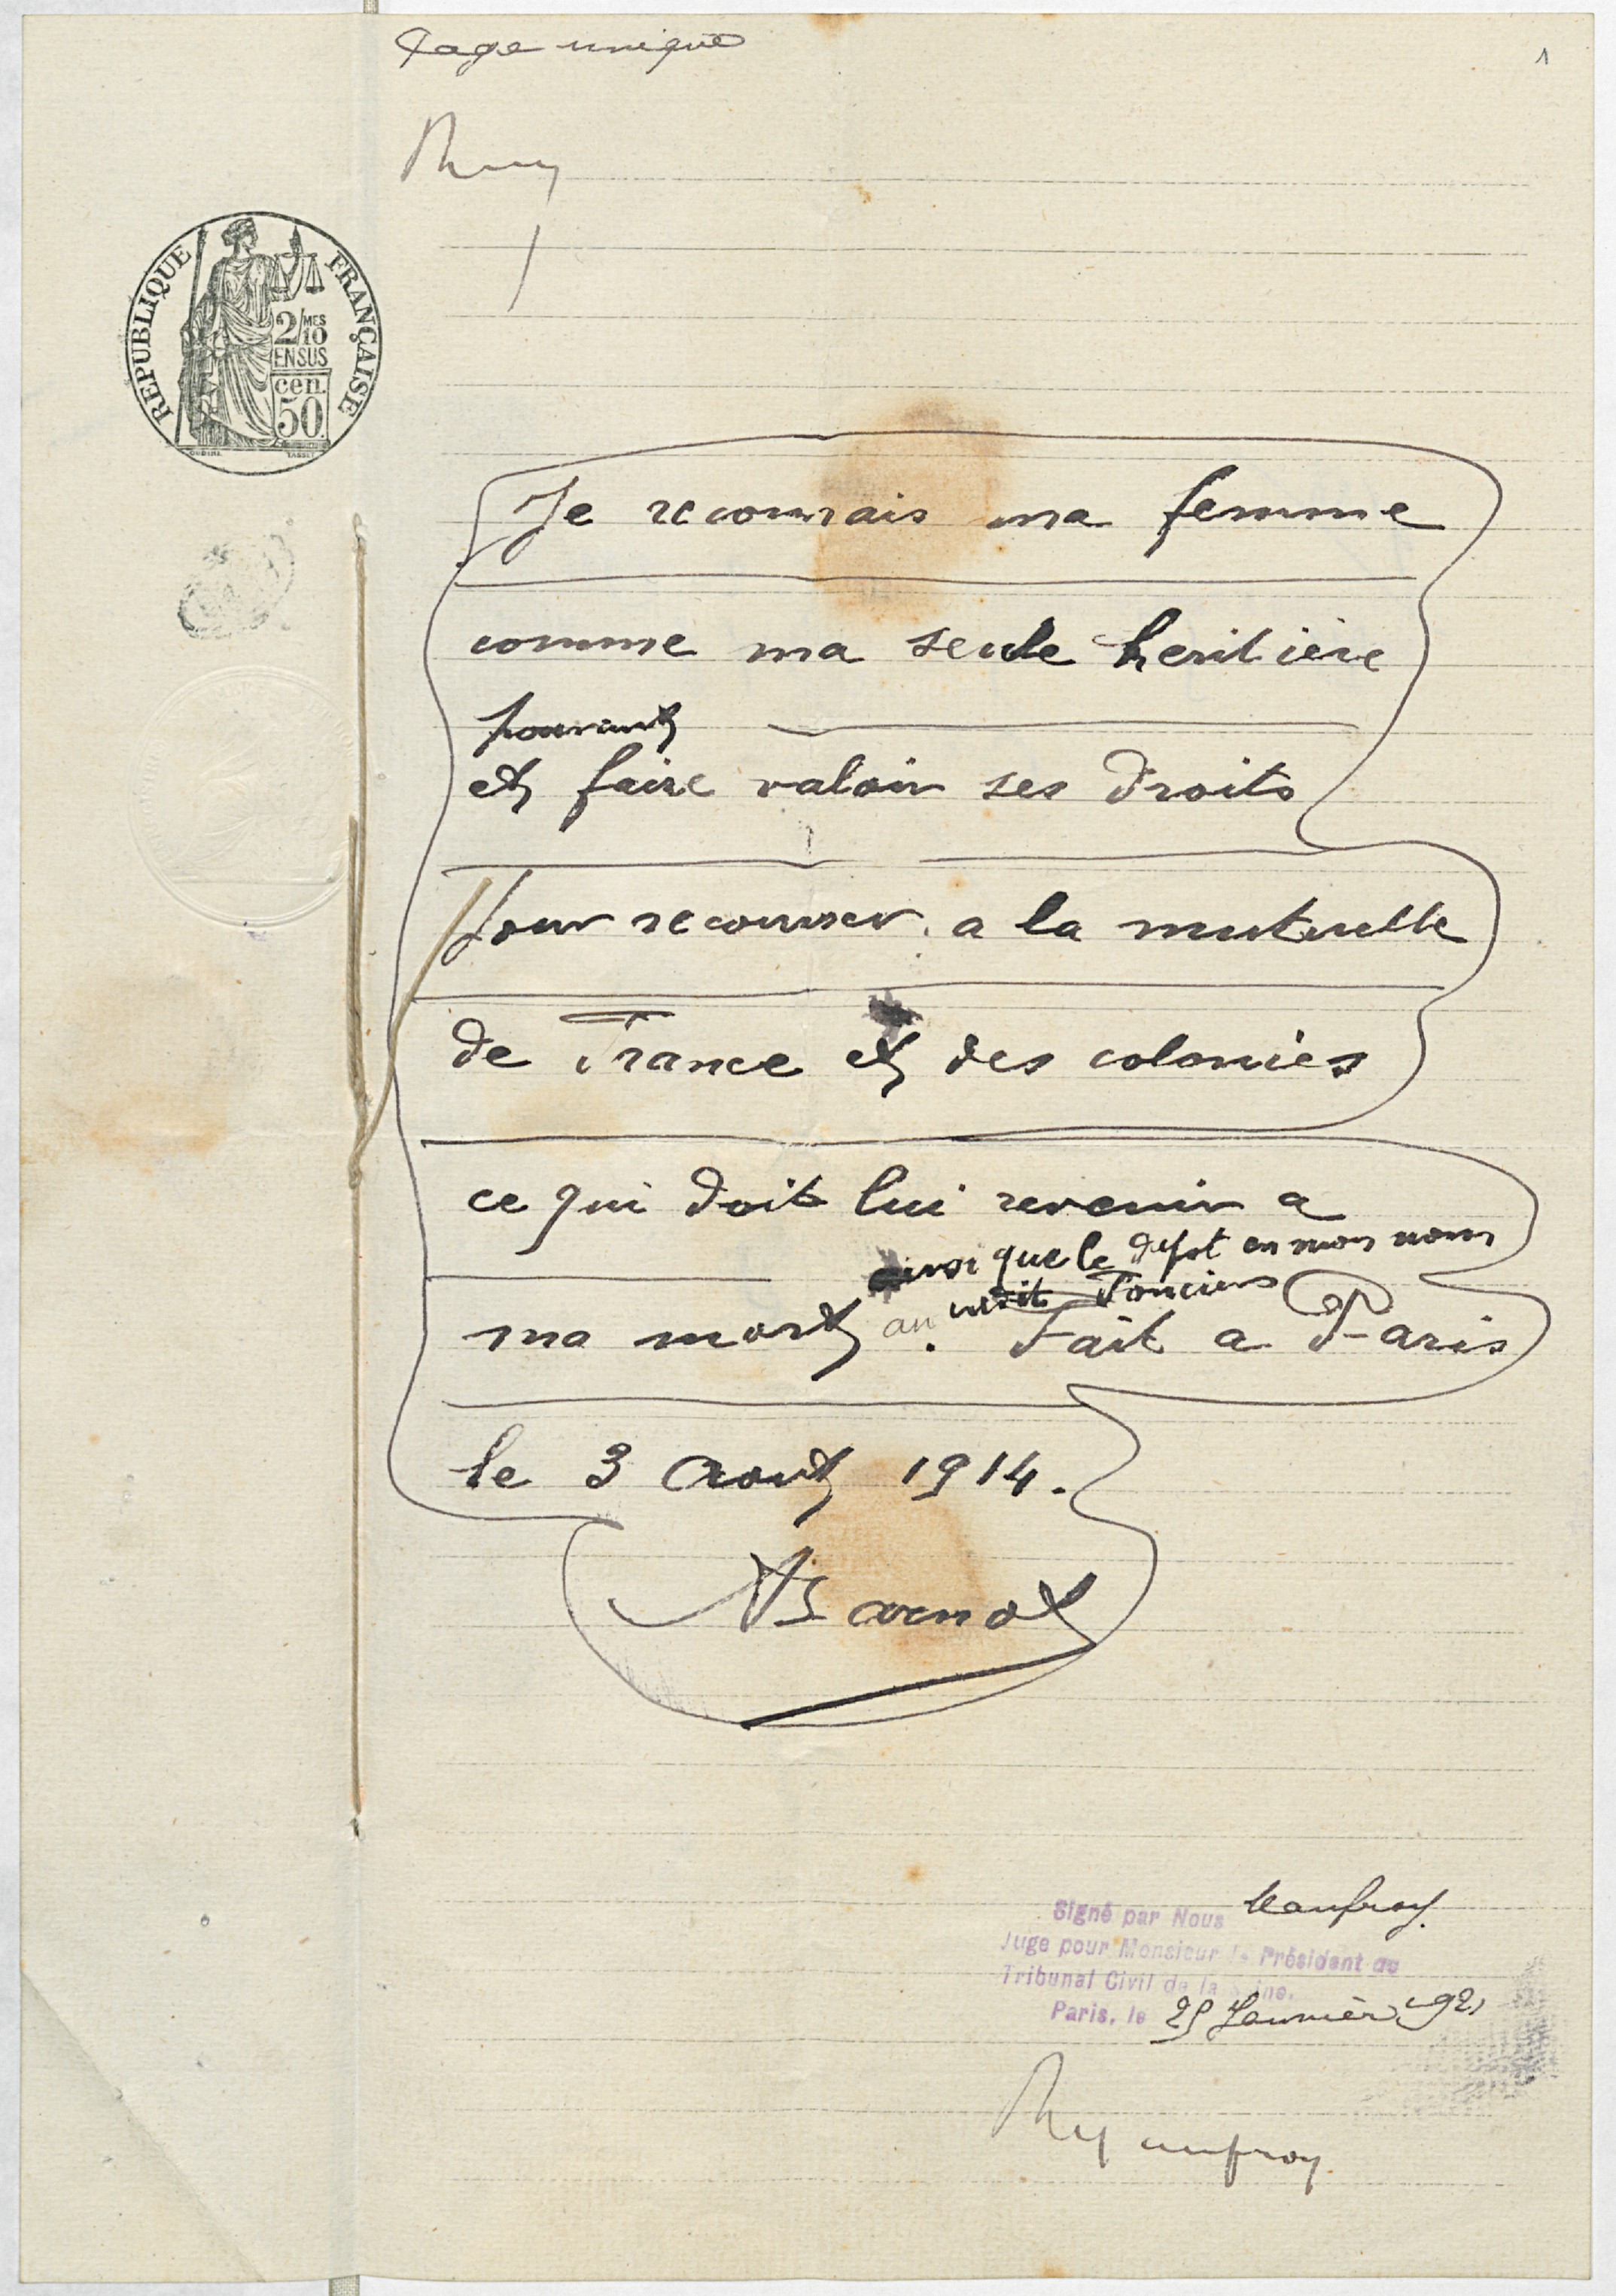 Page unique
1
REPUBLIQUE FRANÇAISE
2/10 MES
EN SUS
cen.
50
OUDINÉ TASSET
Je reconnais ma femme
comme ma seule heritière
pouvant
et faire valoir ses droits
Pour recouvrer a la mutuelle
de France et des colonies
ce qui doit lui revenir a
ainsi que le depot en mon nom
au credit Foncier
ma mort. Fait a Paris
le 3 Aout 1914.
Barnot
Signé par Nous Maufroy
Juge pour Monsieur le Président au
Tribunal Civil de la Seine.
Paris, le 25 Janvier 1921
Maufroy